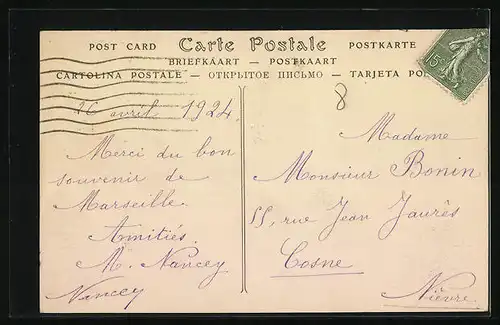 POST CARD Carte Postale POSTKARTE
BRIEFKAART — POSTKAART
CARTOLINA POSTALE — ОТКРЫТОЕ ПИСЬМО — TARJETA PO
15c
26 avril 1924.
8
Merci du bon
souvenir de
Marseille.
Amitiés.
M. Nancey
Nancey
Madame
Monsieur Bonin
55, rue Jean Jaurès
Cosne
Nièvre